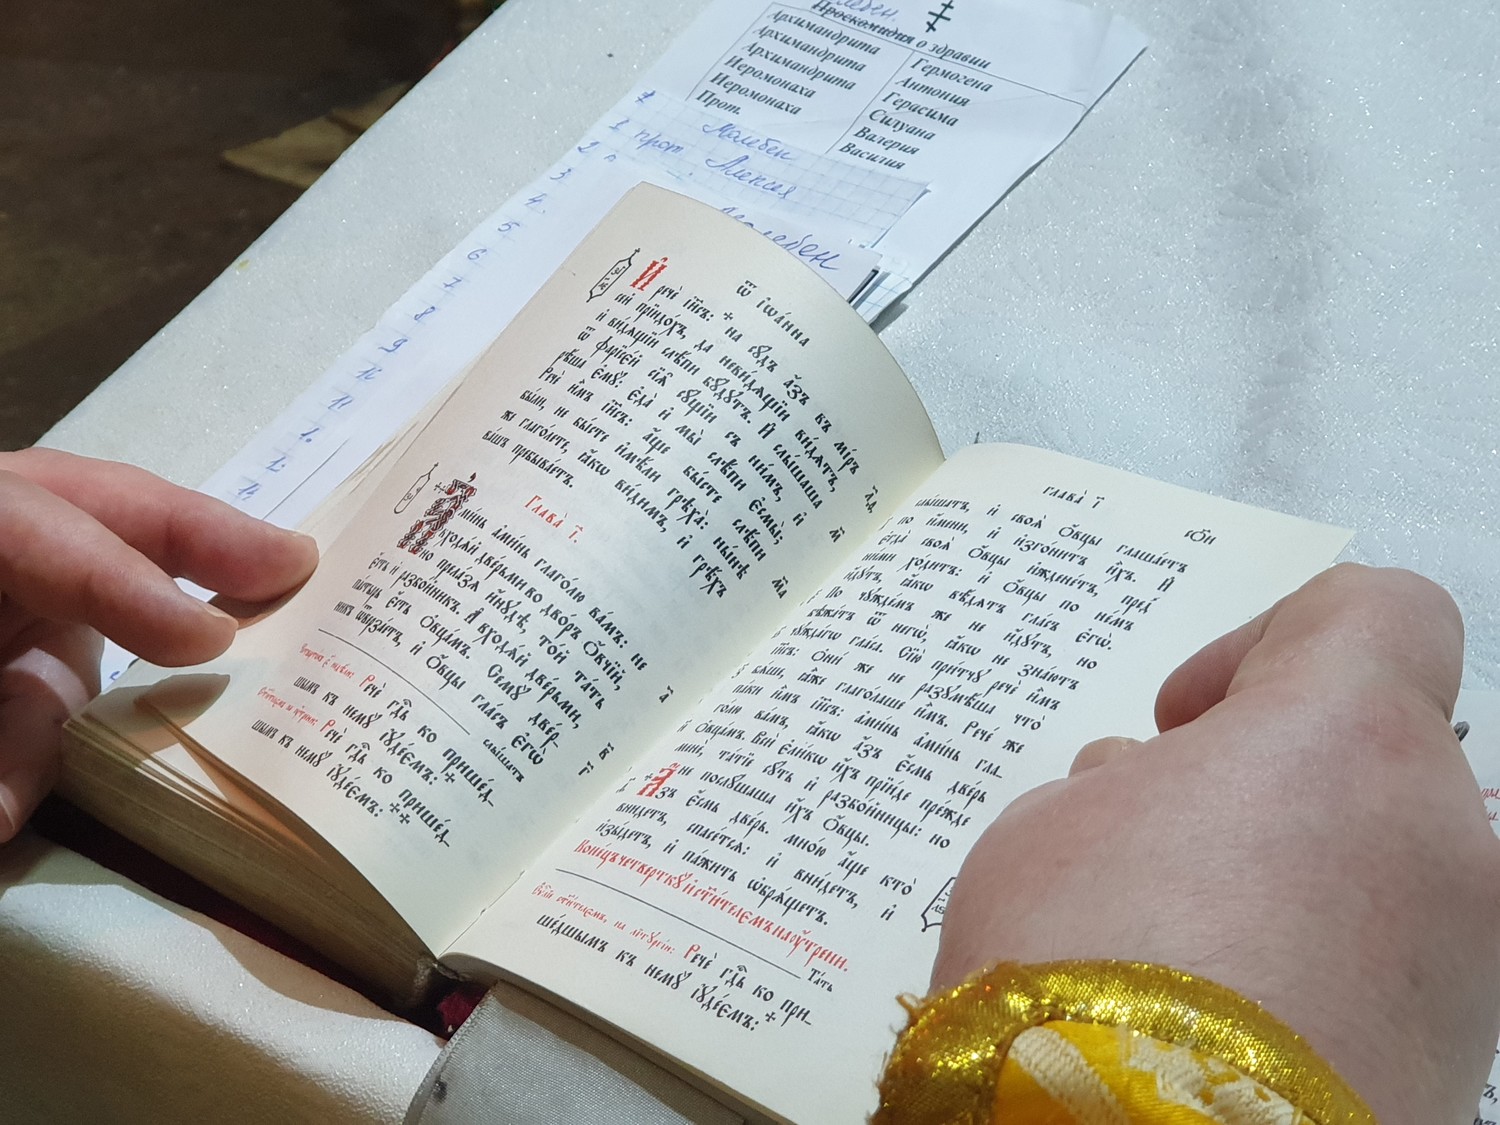 Проскомидия о здравии
Архимандрита Гермогена
Архимандрита Антония
Архимандрита Герасима
Иеромонаха Силуана
Иеромонаха Валерия
Прот. Василия
Молебен
1 прот. Алексея
2
3
4.
5
6
7
8
9
10
11
Молебен
Ѿ Іѡа́нна
И҆ речѐ і҆и҃съ: на сꙋ́дъ а҆́зъ въ мі́ръ
се́й прїидо́хъ, да неви́дѧщїи ви́дѧтъ,
и҆ ви́дѧщїи слѣ́пи бꙋ́дꙋтъ. И҆ слы́шаша
ѿ фарїсє́й сїѧ̑ сꙋ́щїи съ ни́мъ, и҆
рѣ́ша є҆мꙋ̀: є҆да̀ и҆ мы̀ слѣ́пи є҆смы̀;
Речѐ и҆̀мъ і҆и҃съ: а҆́ще бы́сте слѣ́пи
бы́ли, не бы́сте и҆мѣ́ли грѣха̀: ны́нѣ
же глаго́лете, ꙗ҆́кѡ ви́димъ, и҆ грѣ́хъ
ва́шъ пребыва́етъ.
Глава̀ і҃.
А҆ми́нь а҆ми́нь глаго́лю ва́мъ: не
входѧ́й две́рьми во дво́ръ ѻ҆́вчїй,
но прела́зѧ и҆нꙋ́дѣ, то́й та́ть
є҆́сть и҆ разбо́йникъ. А҆ входѧ́й две́рьми,
па́стырь є҆́сть ѻ҆вца́мъ. Семꙋ̀ две́р-
никъ ѿверза́етъ, и҆ ѻ҆́вцы гла́съ є҆гѡ̀
слы́шатъ
Речѐ гдⷭ҇ь ко прише́д-
шымъ къ немꙋ̀ і҆ꙋде́ємъ:
Речѐ гдⷭ҇ь ко прише́д-
шымъ къ немꙋ̀ і҆ꙋде́ємъ:
Глава̀ і҃
слы́шатъ, и҆ своѧ̑ ѻ҆́вцы глаша́етъ
по и҆́мени, и҆ и҆зго́нитъ и҆̀хъ. И҆
є҆гда̀ своѧ̑ ѻ҆́вцы и҆ждене́тъ, пред̾
ни́ми хо́дитъ: и҆ ѻ҆́вцы по не́мъ
и҆́дꙋтъ, ꙗ҆́кѡ вѣ́дѧтъ гла́съ є҆гѡ̀.
По чꙋжде́мъ же не и҆́дꙋтъ, но
бѣжа́тъ ѿ негѡ̀, ꙗ҆́кѡ не зна́ютъ
чꙋжда́гѡ гла́са. Сїю̀ при́тчꙋ речѐ и҆̀мъ
і҆и҃съ: ѻ҆ни́ же не разꙋмѣ́ша что̀
бѧ́ше, ꙗ҆̀же глаго́лаше и҆̀мъ. Рече́ же
па́ки и҆̀мъ і҆и҃съ: а҆ми́нь а҆ми́нь гла-
го́лю ва́мъ, ꙗ҆́кѡ а҆́зъ є҆́смь две́рь
ѻ҆вца́мъ. Всѝ є҆ли́кѡ и҆́хъ прїи́де пре́жде
менє̀, та́тїе сꙋ́ть и҆ разбо́йницы: но
не послꙋ́шаша и҆́хъ ѻ҆́вцы.
А҆́зъ є҆́смь две́рь. мно́ю а҆́ще кто̀
вни́детъ, спасе́тсѧ: и҆ вни́детъ, и҆
и҆зы́детъ, и҆ па́жить ѡ҆брѧ́щетъ.
Коне́цъ четверткꙋ̀ и҆ ст҃и́телємъ на ᲂу҆́трени.
Та́ть
на лїтꙋргі́и: Речѐ гдⷭ҇ь ко при-
ше́дшымъ къ немꙋ̀ і҆ꙋде́ємъ: